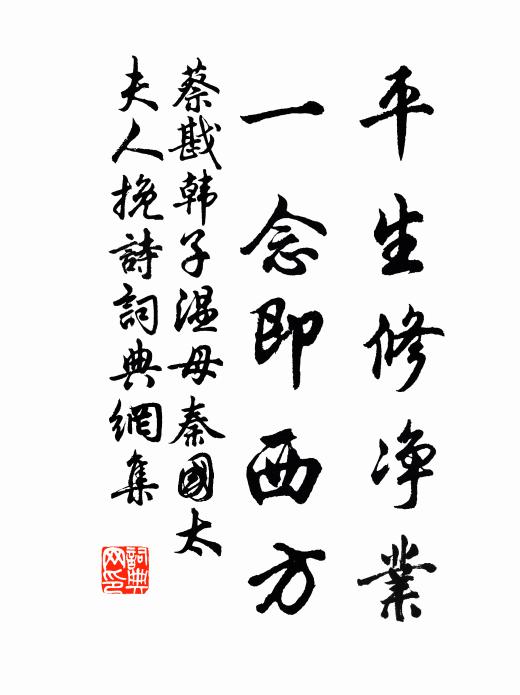 平生修净業
一念即西方
蔡戡韩子温母秦國太
夫人挽詩詞典網集
詞典网印